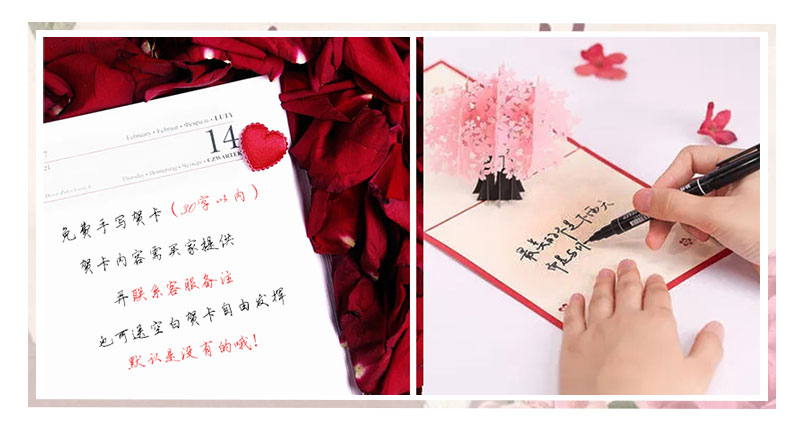 February • Februar • Февраль • LUTY
14
CZWARTEK
免费手写贺卡(30字以内)
贺卡内容需买家提供
并联系客服备注
也可送空白贺卡自由发挥
默认是没有的哦!
最美的不是下雨天